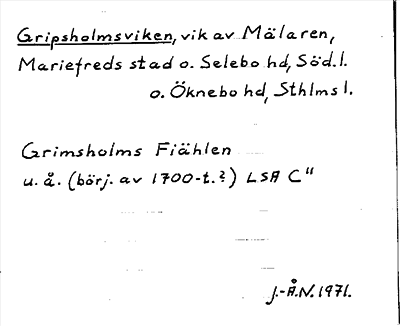 Gripsholmsviken, vik av Mälaren,
Mariefreds stad o. Selebo hd, Söd.l.
o. Öknebo hd, Sthlms l.
Grimsholms Fiählen
u.å. (börj. av 1700-t.?) LSA C"
J.-Å.N. 1971.